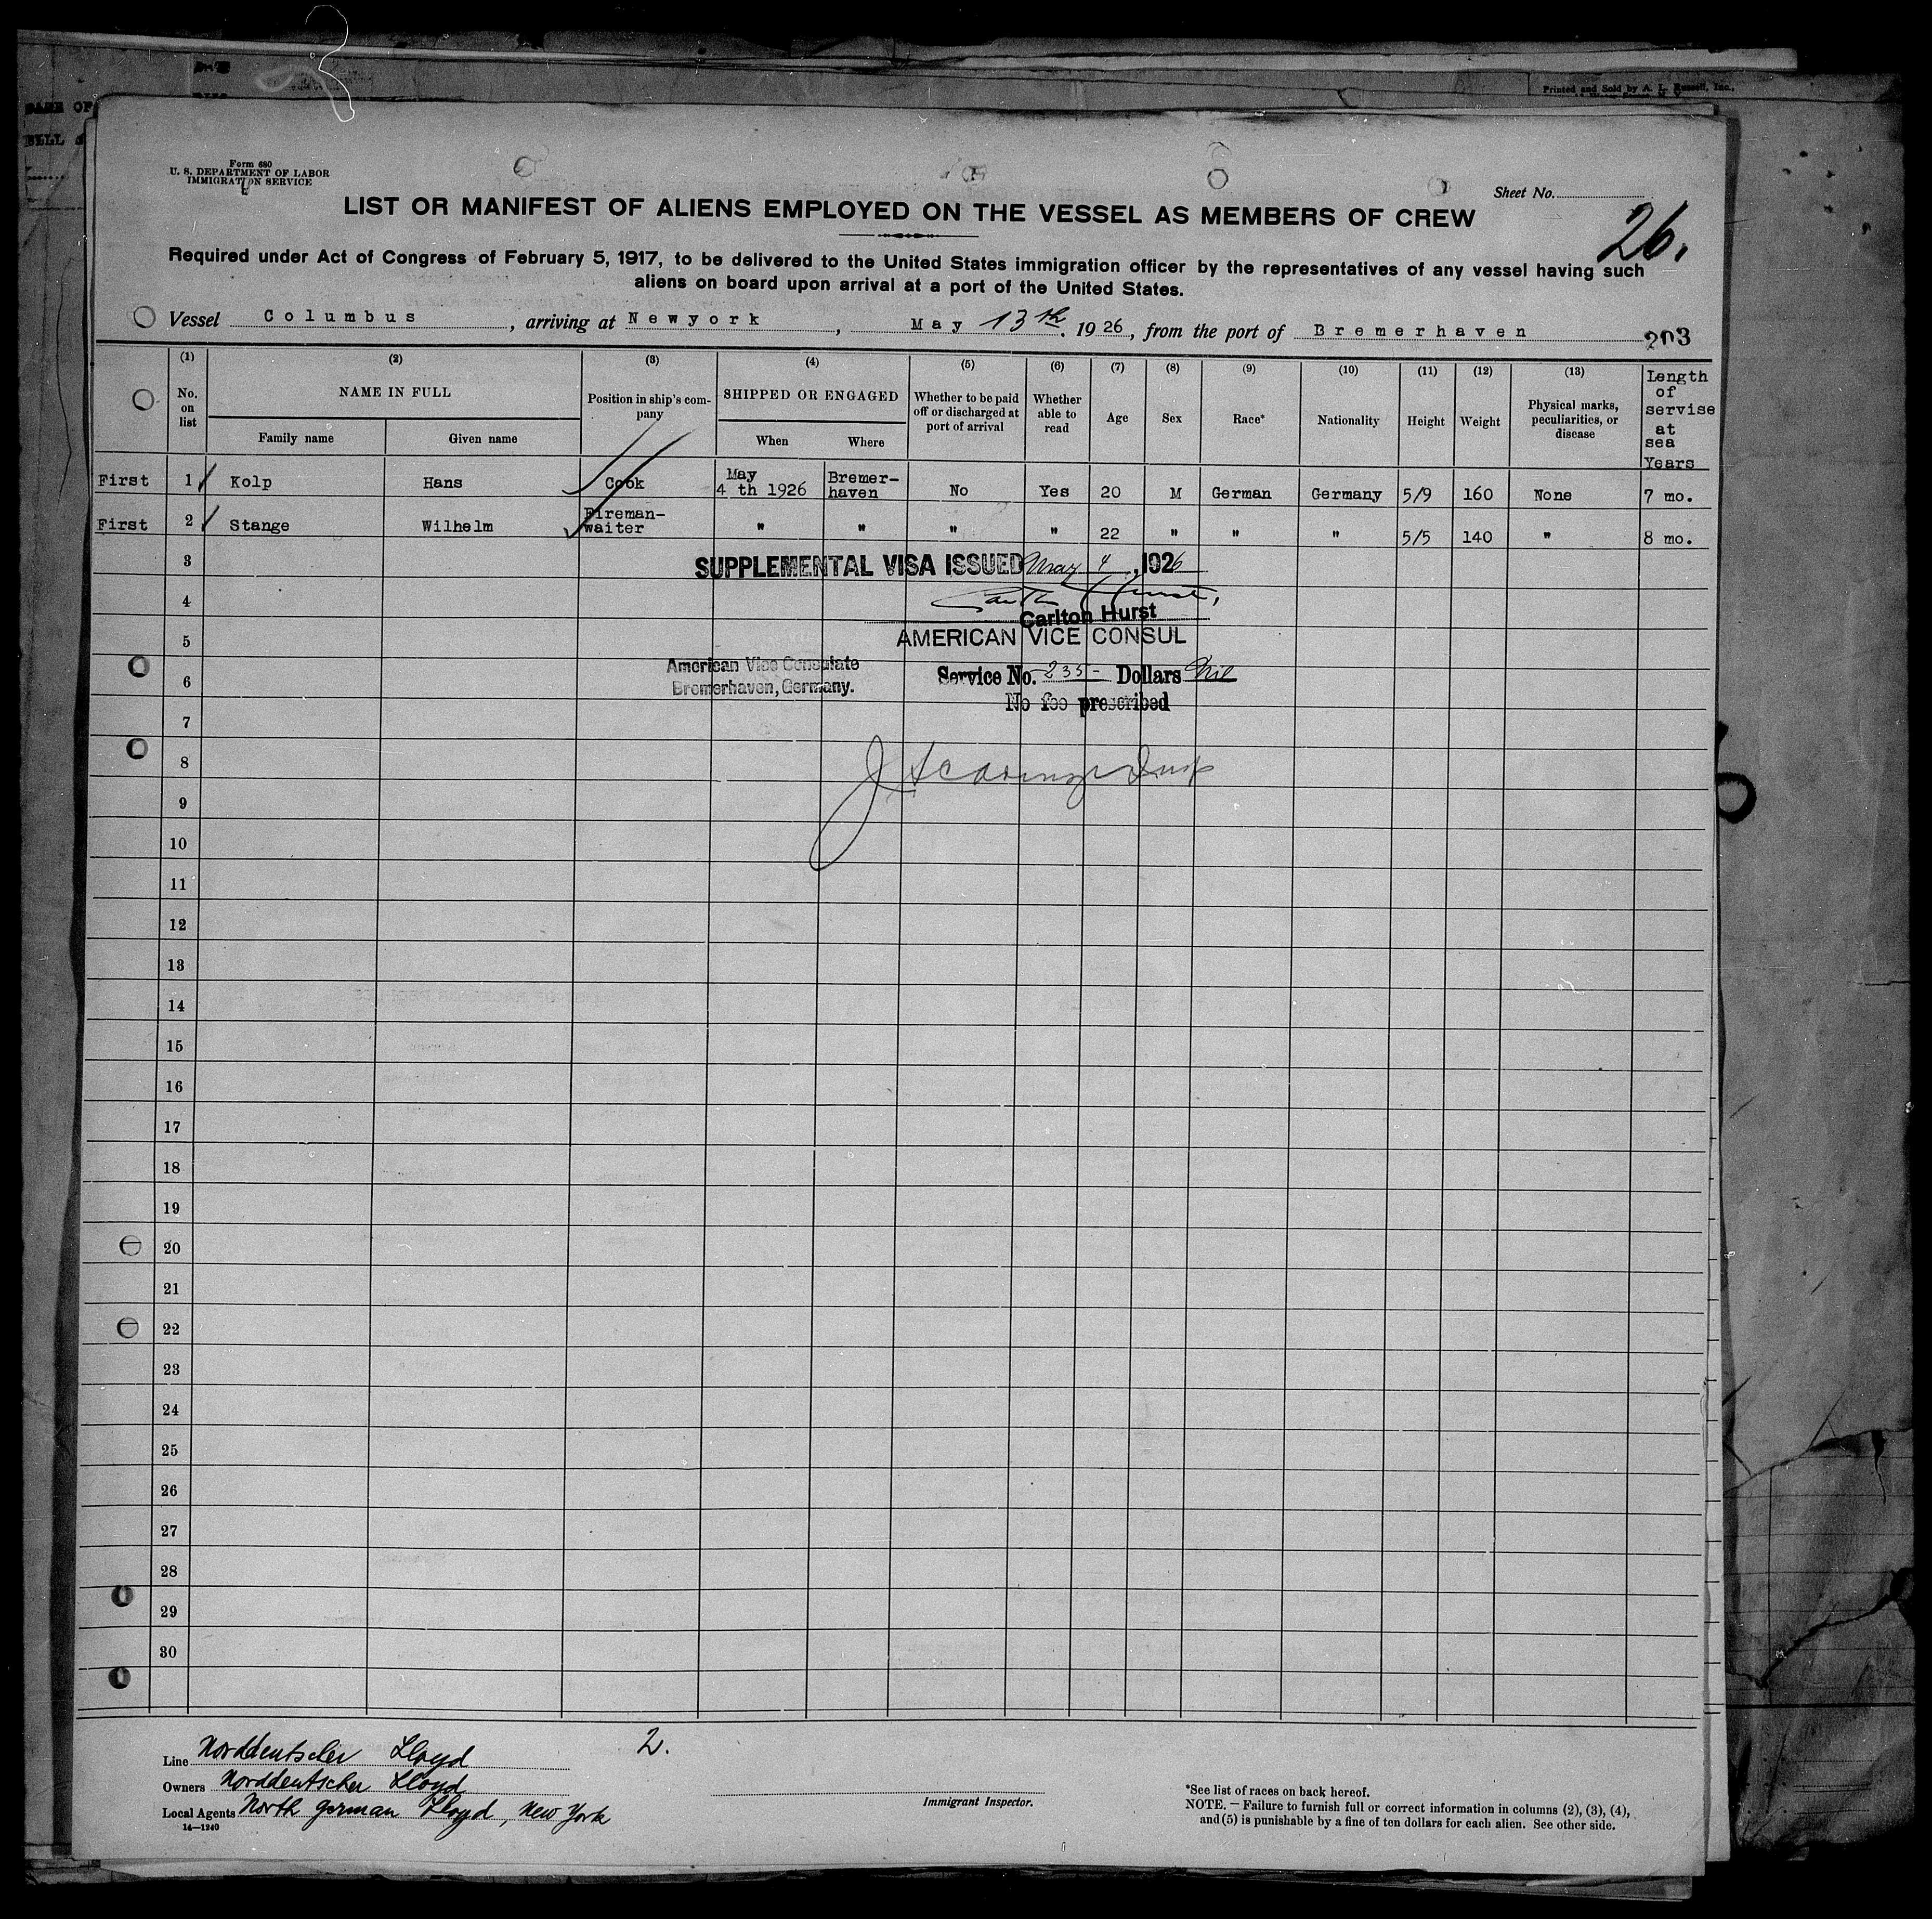 Printed and Sold by A. L. Russell, Inc.,
Form 680
U. S. DEPARTMENT OF LABOR
IMMIGRATION SERVICE
Sheet No.
26.
LIST OR MANIFEST OF ALIENS EMPLOYED ON THE VESSEL AS MEMBERS OF CREW
Required under Act of Congress of February 5, 1917, to be delivered to the United States immigration officer by the representatives of any vessel having such
aliens on board upon arrival at a port of the United States.
Vessel Columbus, arriving at Newyork, May 13th, 1926, from the port of Bremerhaven
203
(1) (2) (3) (4) (5) (6) (7) (8) (9) (10) (11) (12) (13)
No. on list
NAME IN FULL
Family name Given name
Position in ship's company
SHIPPED OR ENGAGED
When Where
Whether to be paid off or discharged at port of arrival
Whether able to read
Age
Sex
Race*
Nationality
Height
Weight
Physical marks, peculiarities, or disease
Length of servise at sea Years
First 1 Kolp Hans Cook May 4 th 1926 Bremer-haven No Yes 20 M German Germany 5/9 160 None 7 mo.
First 2 Stange Wilhelm Fireman-waiter " " " " 22 " " " 5/5 140 " 8 mo.
3
SUPPLEMENTAL VISA ISSUED May 4, 1926
4
Carlton Hurst
5
AMERICAN VICE CONSUL
American Vice Consulate
Bremerhaven, Germany.
6
Service No. 235- Dollars Nil
No fee prescribed
7
8
9
10
11
12
13
14
15
16
17
18
19
20
21
22
23
24
25
26
27
28
29
30
2.
Line Norddeutscher Lloyd
Owners Norddeutscher Lloyd
Local Agents North German Lloyd, New York
14—1240
Immigrant Inspector.
*See list of races on back hereof.
NOTE. — Failure to furnish full or correct information in columns (2), (3), (4),
and (5) is punishable by a fine of ten dollars for each alien. See other side.